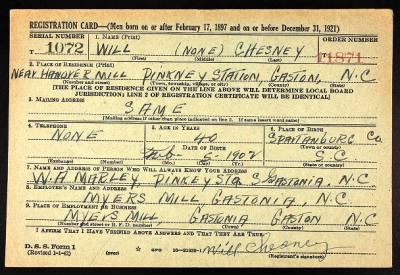 REGISTRATION CARD—(Men born on or after February 17, 1897 and on or before December 31, 1921)
SERIAL NUMBER 1. NAME (Print) ORDER NUMBER
T 1072 WILL (NONE) CHESNEY T1871
(First) (Middle) (Last)
2. PLACE OF RESIDENCE (Print)
NEAR HANOVER MILL PINKNEY STATON, GASTON, N.C
(Number and street) (Town, township, village, or city) (County) (State)
[THE PLACE OF RESIDENCE GIVEN ON THE LINE ABOVE WILL DETERMINE LOCAL BOARD
JURISDICTION; LINE 2 OF REGISTRATION CERTIFICATE WILL BE IDENTICAL]
3. MAILING ADDRESS
SAME
[Mailing address if other than place indicated on line 2. If same insert word same]
4. TELEPHONE 5. AGE IN YEARS 6. PLACE OF BIRTH
NONE 40 SPARTANBURG Co.
DATE OF BIRTH (Town or county)
Feb 2-1902 S.C.
(Exchange) (Number) (Mo.) (Day) (Yr.) (State or country)
7. NAME AND ADDRESS OF PERSON WHO WILL ALWAYS KNOW YOUR ADDRESS
W.A MARLEY, PINKEY Sta GASTONIA, N.C
8. EMPLOYER'S NAME AND ADDRESS
MYERS MILL, GASTONIA, N.C
9. PLACE OF EMPLOYMENT OR BUSINESS
MYERS MILL, GASTONIA GASTON N.C
(Number and street or R. F. D. number) (Town) (County) (State)
I AFFIRM THAT I HAVE VERIFIED ABOVE ANSWERS AND THAT THEY ARE TRUE.
D. S. S. Form 1
(Revised 1-1-42) (over) Will Chesney